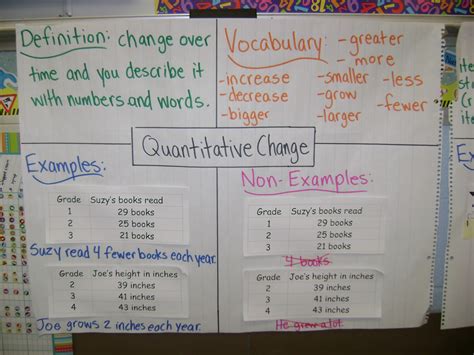 Definition: change over
time and you describe it
with numbers and words.
Vocabulary: -greater
- more
-increase -smaller -less
-decrease -grow -fewer
-bigger -larger
Quantitative Change
Examples:
Grade Suzy's books read
1 29 books
2 25 books
3 21 books
Suzy read 4 fewer books each year.
Grade Joe's height in inches
2 39 inches
3 41 inches
4 43 inches
Joe grows 2 inches each year.
Non-Examples:
Grade Suzy's books read
1 29 books
2 25 books
3 21 books
4 books
Grade Joe's height in inches
2 39 inches
3 41 inches
4 43 inches
He grew a lot.